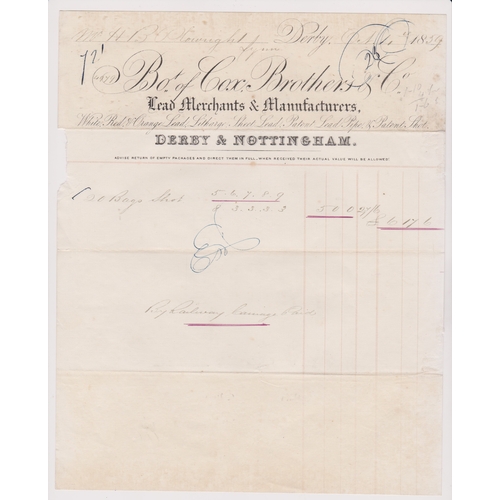 Derby, 1859
Bot. of Cox, Brothers & Co.
Lead Merchants & Manufacturers,
White, Red, & Orange Lead, Litharge, Sheet Lead, Patent Lead Pipe, & Patent Shot.
DERBY & NOTTINGHAM.
ADVISE RETURN OF EMPTY PACKAGES AND DIRECT THEM IN FULL, WHEN RECEIVED THEIR ACTUAL VALUE WILL BE ALLOWED.
Bags Shot 5. 6. 7. 8. 9
3. 3. 3. 3 5 0 0
6 17 6
By Railway Carriage Paid